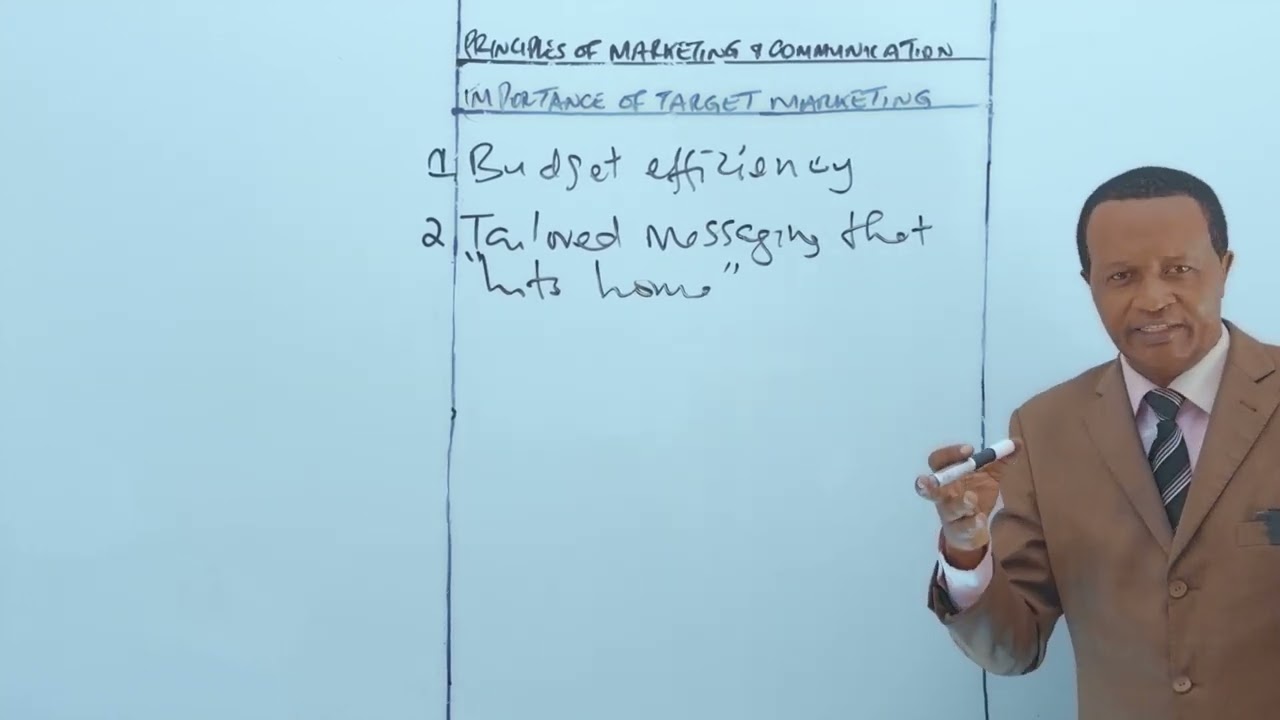 PRINCIPLES OF MARKETING & COMMUNICATION
IMPORTANCE OF TARGET MARKETING
1 Budget efficiency
2 Tailored messaging that
"hits home"